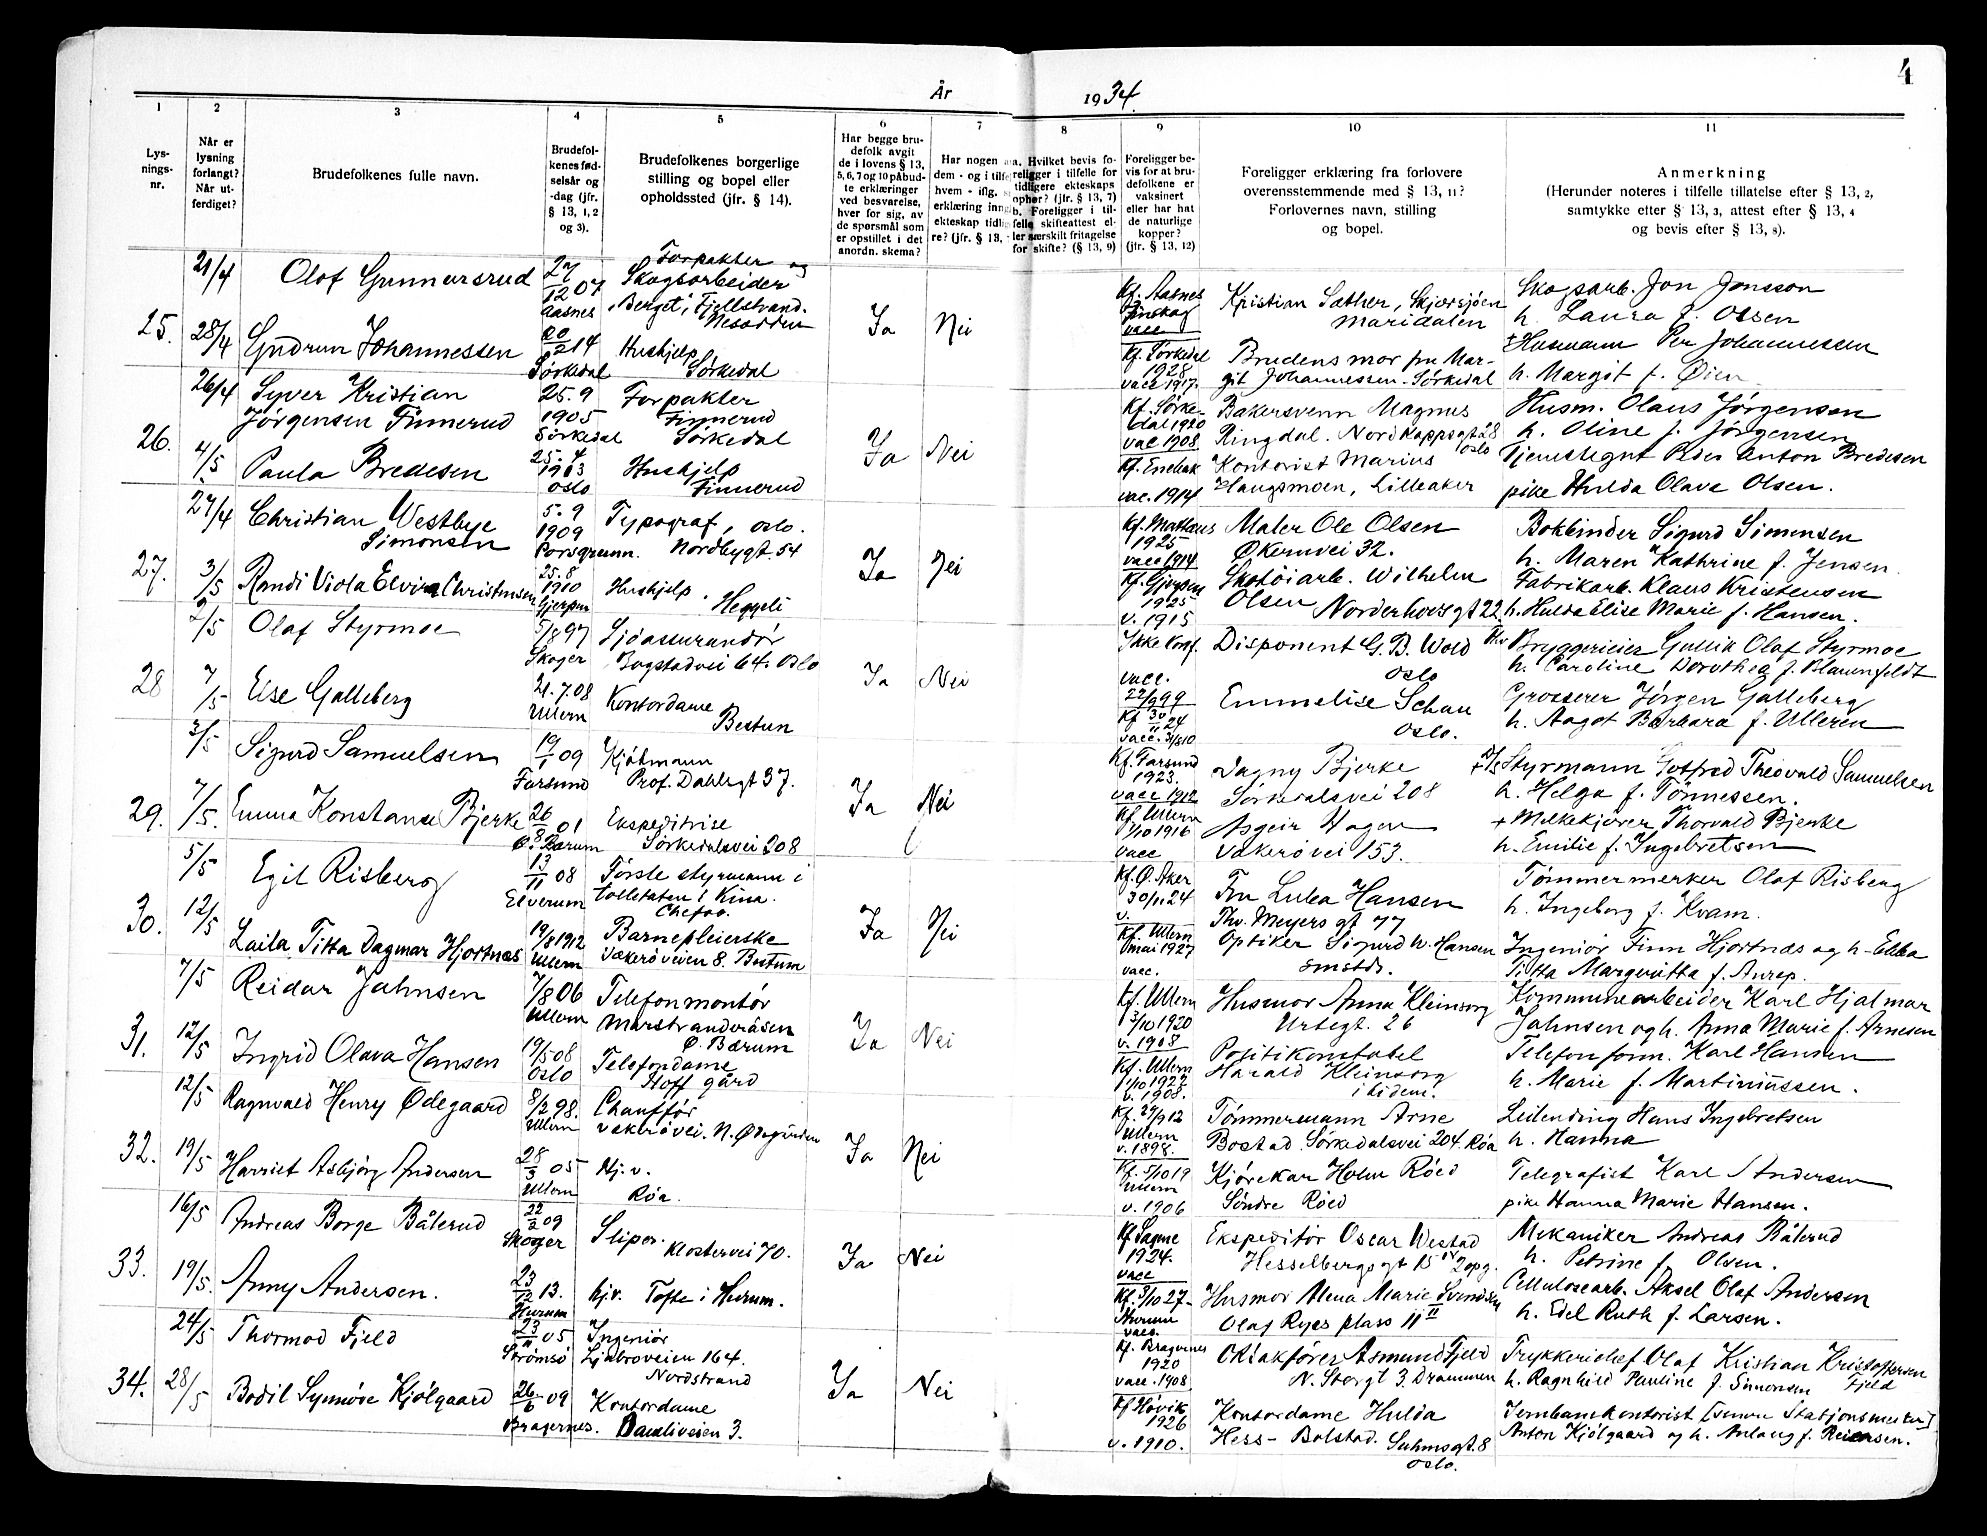 År 1934.
4
1
2
3
4
5
6
7
8
9
10
11
Lys-
nings-
nr.
Når er
lysning
forlangt?
Når ut-
ferdiget?
Brudefolkenes fulle navn.
Brudefol-
kenes fød-
selsår og
-dag (jfr.
§ 13, 1, 2
og 3).
Brudefolkenes borgerlige
stilling og bopel eller
opholdssted (jfr. § 14).
Har begge bru-
defolk avgit
de i lovens § 13,
5, 6, 7 og 10 påbud-
te erklæringer
ved besvarelse,
hver for sig, av
de spørsmål som
er opstillet i det
anordn. skema?
Har nogen
dem - og i tilfe
hvem - iflg.
erklæring inng
ekteskap tidlig
re? (jfr. § 13,
a. Hvilket bevis fo-
religger i tilfelle for
tidligere ekteskaps
ophør? (jfr. § 13, 7)
b. Foreligger i til-
felle skifteattest el-
ler særskilt fritagelse
for skifte? (§ 13, 9)
Foreligger be-
vis for at bru-
defolkene er
vaksinert
eller har hat
de naturlige
kopper?
(jfr. § 13, 12)
Foreligger erklæring fra forlovere
overensstemmende med § 13, 11?
Forlovernes navn, stilling
og bopel.
Anmerkning
(Herunder noteres i tilfelle tillatelse efter § 13, 2,
samtykke efter § 13, 3, attest efter § 13, 4
og bevis efter § 13, 8).
25.
21/4
28/4
Olof Gunnarsrud
Gudrun Johannessen
27/12 07
Aasnes
20/2 14
Sørkedal
Forpakter og
Skogsarbeider
Berget, Fjellstrand.
Nesodden
Hushjelp
Sørkedal
Ja
Nei
Kf. Aasnes
Finskog
vacc
Kf. Sørkedal
1928
vacc 1917.
Kristian Sæther, Skjærsjøen
Maridalen
Brudens mor fru Mar-
git Johannessen. Sørkedal
Skogsarb. Jon Jonsson
h. Laura f. Olsen
+ Husmann Per Johannessen
h. Margit f. Øien
26.
26/4
4/5
Syver Kristian
Jørgensen Finnerud
Paula Bredesen
25.9
1905
Sørkedal
25.4
1903
Oslo
Forpakter
Finnerud
Sørkedal
Hushjelp
Finnerud
Ja
Nei
Kf. Sørke-
dal 1920
vac 1908.
Kf. Enebak
vac. 1914
Bakersvenn Magnus
Ringdal. Nordkappsgt 28
Oslo
Kontorist Marius
Haugsmoen, Lilleaker
Husm. Olaus Jørgensen
h. Oline f. Jørgensen
Tjenestegut Peder Anton Bredesen
pike Hulda Olava Olsen.
27.
27/4
3/5
Christian Westbye
Simonsen
Randi Viola Elvira Christensen
5.9
1909
Porsgrunn.
25.8
1910
Gjerpen
Typograf, Oslo.
Nordbygt. 54
Hushjelp.
Heggeli
Ja
Nei
Kf. Mattæus
1925
vacc 1914
Kf. Gjerpen
1925
v. 1915
Maler Ole Olsen
Økernvei 32.
Skotøiarb. Wilhelm
Olsen Norderhovsgt 22.
Bokbinder Sigurd Simonsen
h. Maren Kathrine f. Jensen.
Fabrikarb. Klaus Kristensen
h. Hulda Elise Marie f. Hansen.
28
2/5
7/5
Olaf Styrmoe
Else Galleberg
5/8 97
Skoger
21.7.08
Ullern
Sjøassurandør
Bogstadvei 64. Oslo
Kontordame
Bestun
Ja
Nei
Ikke konf.
vacc.
22/9 99
Kf 30/11 24
vacc. 31/8 10
Disponent G. B. Wold Thv
Oslo
Emmelise Schau
Oslo.
Bryggerieier Gullik Olaf Styrmoe
h. Caroline Dorothea f. Blauenfeldt
Grosserer Jørgen Galleberg
h. Aagot Barbara f. Ulleren
29.
3/5
7/5.
Sigurd Samuelsen
Emma Konstanse Bjerke
19/1 09
Farsund
26/8 01
Ø. Bærum
Kjøbmann
Prof. Dahlsgt 37.
Ekspeditrise
Sørkedalsvei 208
Ja
Nei
Kf. Farsund
1923.
vacc 1912
Kf. Ullern
1/10 1916
vacc
Dagny Bjerke
Sørkedalsvei 208
Asgeir Hagen
Vækerøvei 153.
Styrmann Gotfred Theovald Samuelsen
h. Helga f. Tønnessen.
+ Melkekjører Thorvald Bjerke
h. Emilie f. Ingebretsen
30.
5/5
12/5
Egil Risberg
Laila Titta Dagmar Hjortnæs
13/11 08
Elverum
19/8 1912
Ullern
Første styrmann i
tolletaten i Kina.
Chefoo.
Barnepleierske
Vækerøveien 8. Bestum
Ja
Nei
Kf. Ø. Aker
30/11 24
v.
Kf. Ullern
mai 1927
vacc.
Fru Lulea Hansen
Thv. Meyers gt 77
Optiker Sigurd W. Hansen
smstds.
Tømmermerker Olaf Risberg
h. Ingeborg f. Kvam.
Ingeniør Finn Hjortnæs og h. Ebba
Titta Margeritta f. Anrep.
31.
7/5
12/5
Reidar Jahnsen
Ingrid Olava Hansen
7/8 06
Ullern
19/5 08
Oslo
Telefonmontør
Marstranderåsen
Ø. Bærum
Telefondame
Hoff gård
Ja
Nei
Kf. Ullern
3/10 1920
v. 1908
Kf. Ullern
1/10 1922
v. 1908.
Husmor Anna Kleinsorg
Urtegt. 26
Politikonstabel
Harald Kleinsorg
ibidem.
Kommunearbeider Karl Hjalmar
Jahnsen og h. Anna Marie f. Arnesen
Telefonform. Karl Hansen
h. Marie f. Martiniussen.
32.
12/5
19/5
Ragnvald Henry Ødegaard
Harriet Asbjørg Andersen
8/2 98.
Ullern
28/3 05
Ullern
Chauffør
Vækerøvei. N. Ødegården
Hj. v.
Røa.
Ja
Nei
Kf. 29/9 12
Ullern
v. 1898.
Kf. 5/10 19
Ullern
v. 1906
Tømmermann Arne
Bostad. Sørkedalsvei 204. Røa
Kjørekar Holm Røed
Søndre Røed
Leilending Hans Ingebretsen
h. Hanna
Telegrafist Karl Andersen
pike Hanna Marie Hansen.
33.
16/5
19/5.
Andreas Borge Bålerud
Anny Andersen.
22/2 09
Skoger
23/12 13.
Hurum
Sliper. Klostervei 70.
Hj.v. Tofte i Hurum.
Ja
Nei
Kf Sagene
1924.
vacc
Kf. 3/10 27
Hurum
vacc.
Ekspeditør Oscar Westad
Hesselbergsgt 15 IV 2 opg.
Husmor Mena Marie Svendsen
Olaf Ryes plass 11 II
Mekaniker Andreas Bålerud
h. Petrine f. Olsen.
Cellulosearb. Aksel Olaf Andersen
h. Edel Ruth f. Larsen.
34.
24/5
28/5
Thormod Fjeld
Bodil Synnøve Kjølgaard
23/11 05
Strømsø
26/6 09
Bragernes.
Ingeniør
Ljabroveien 164.
Nordstrand
Kontordame
Damliveien 3.
Ja
Nei
Kf. Bragernes
1920
vacc. 1908
Kf Høvik
1926
v. 1910.
Asmund Fjeld
N. Storgt 3. Drammen
Kontordame Hulda
Hess-Bolstad. Suhmsgt. 8
Oslo.
Trykkerichef Olaf Kristian Kristoffersen
Fjeld
h. Ragnhild Pauline f. Simonsen
Jernbanekontorist [senere Stasjonsmester]
Anton Kjølgaard og h. Anlaug f. Reiersen.